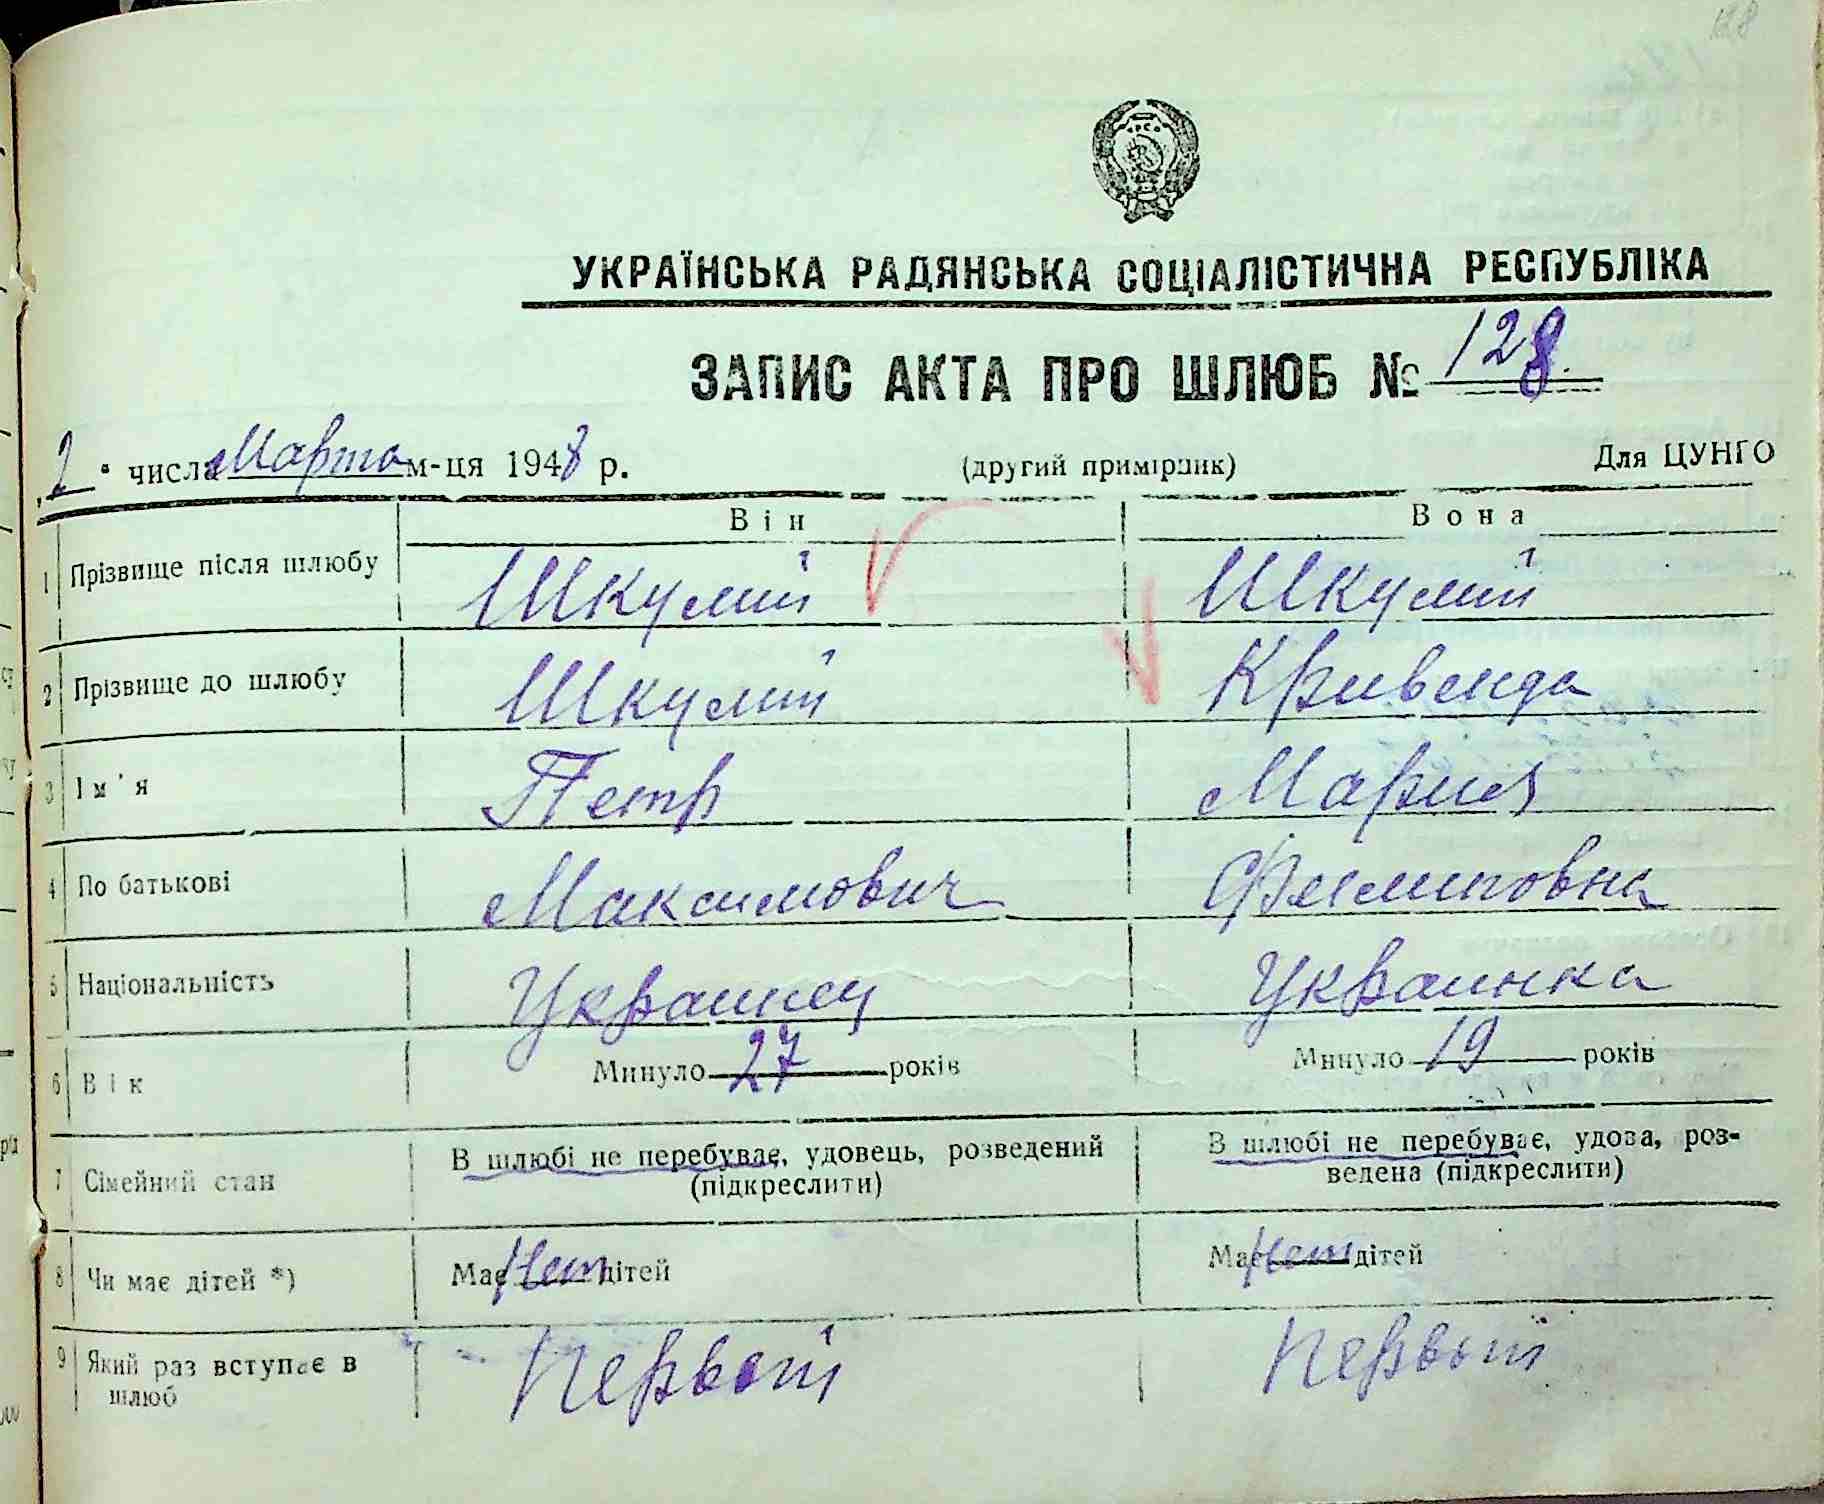 128
УКРАЇНСЬКА РАДЯНСЬКА СОЦІАЛІСТИЧНА РЕСПУБЛІКА
ЗАПИС АКТА ПРО ШЛЮБ № 128.
„2“ числа Марта м-ця 1948 р. (другий примірник) Для ЦУНГО
Він Вона
1 Прізвище після шлюбу Шкулий Шкулий
2 Прізвище до шлюбу Шкулий Кривенда
3 Ім'я Петр Мария
4 По батькові Максимович Филиповна
5 Національність Украинец Украинка
6 Вік Минуло 27 років Минуло 19 років
7 Сімейний стан В шлюбі не перебуває, удовець, розведений (підкреслити) В шлюбі не перебуває, удова, роз-
ведена (підкреслити)
8 Чи має дітей *) Має Нет дітей Має Нет дітей
9 Який раз вступає в шлюб Первый Первый